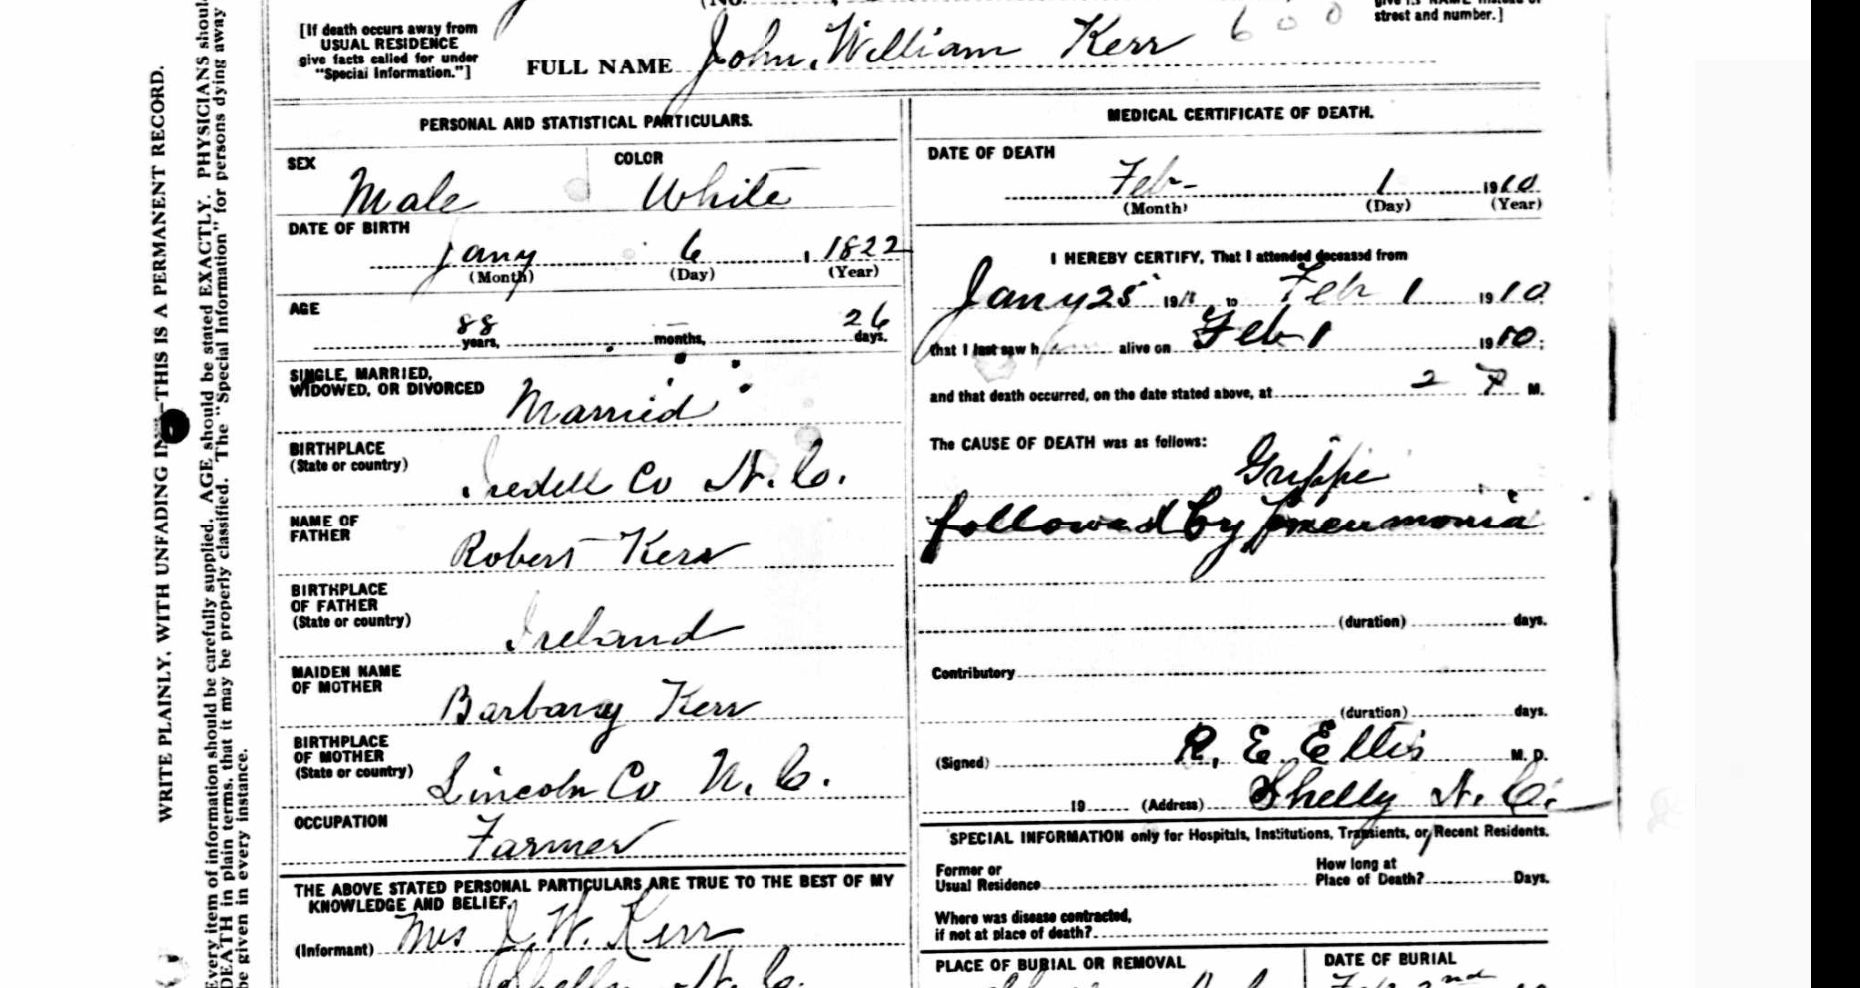 WRITE PLAINLY, WITH UNFADING INK—THIS IS A PERMANENT RECORD.
Every item of information should be carefully supplied. AGE should be stated EXACTLY. PHYSICIANS shoul
DEATH in plain terms, that it may be properly classified. The "Special Information" for persons dying away
be given in every instance.
(No.
[If death occurs away from
USUAL RESIDENCE
give facts called for under
"Special Information."]
street and number.]
FULL NAME John William Kerr 600
PERSONAL AND STATISTICAL PARTICULARS.
SEX Male
COLOR White
DATE OF BIRTH
Jany 6, 1822
(Month) (Day) (Year)
AGE
88 years, — months, 26 days.
SINGLE, MARRIED,
WIDOWED, OR DIVORCED Married
BIRTHPLACE
(State or country) Iredell Co N.C.
NAME OF
FATHER Robert Kerr
BIRTHPLACE
OF FATHER
(State or country) Ireland
MAIDEN NAME
OF MOTHER Barbary Kerr
BIRTHPLACE
OF MOTHER
(State or country) Lincoln Co N.C.
OCCUPATION Farmer
THE ABOVE STATED PERSONAL PARTICULARS ARE TRUE TO THE BEST OF MY
KNOWLEDGE AND BELIEF.
(Informant) Mrs J.W. Kerr
Shelby N.C.
MEDICAL CERTIFICATE OF DEATH.
DATE OF DEATH
Feb- 1 1910
(Month) (Day) (Year)
I HEREBY CERTIFY, That I attended deceased from
Jany 25 1910, to Feb 1 1910
that I last saw h alive on Feb 1 1910;
and that death occurred, on the date stated above, at 2 P M.
The CAUSE OF DEATH was as follows:
Grippe
followed by pneumonia
(duration) days.
Contributory
(duration) days.
(Signed) R. E. Ellis M. D.
19 (Address) Shelby N.C.
SPECIAL INFORMATION only for Hospitals, Institutions, Transients, or Recent Residents.
Former or
Usual Residence
How long at
Place of Death? Days.
Where was disease contracted,
if not at place of death?
PLACE OF BURIAL OR REMOVAL
DATE OF BURIAL
Feb 2nd